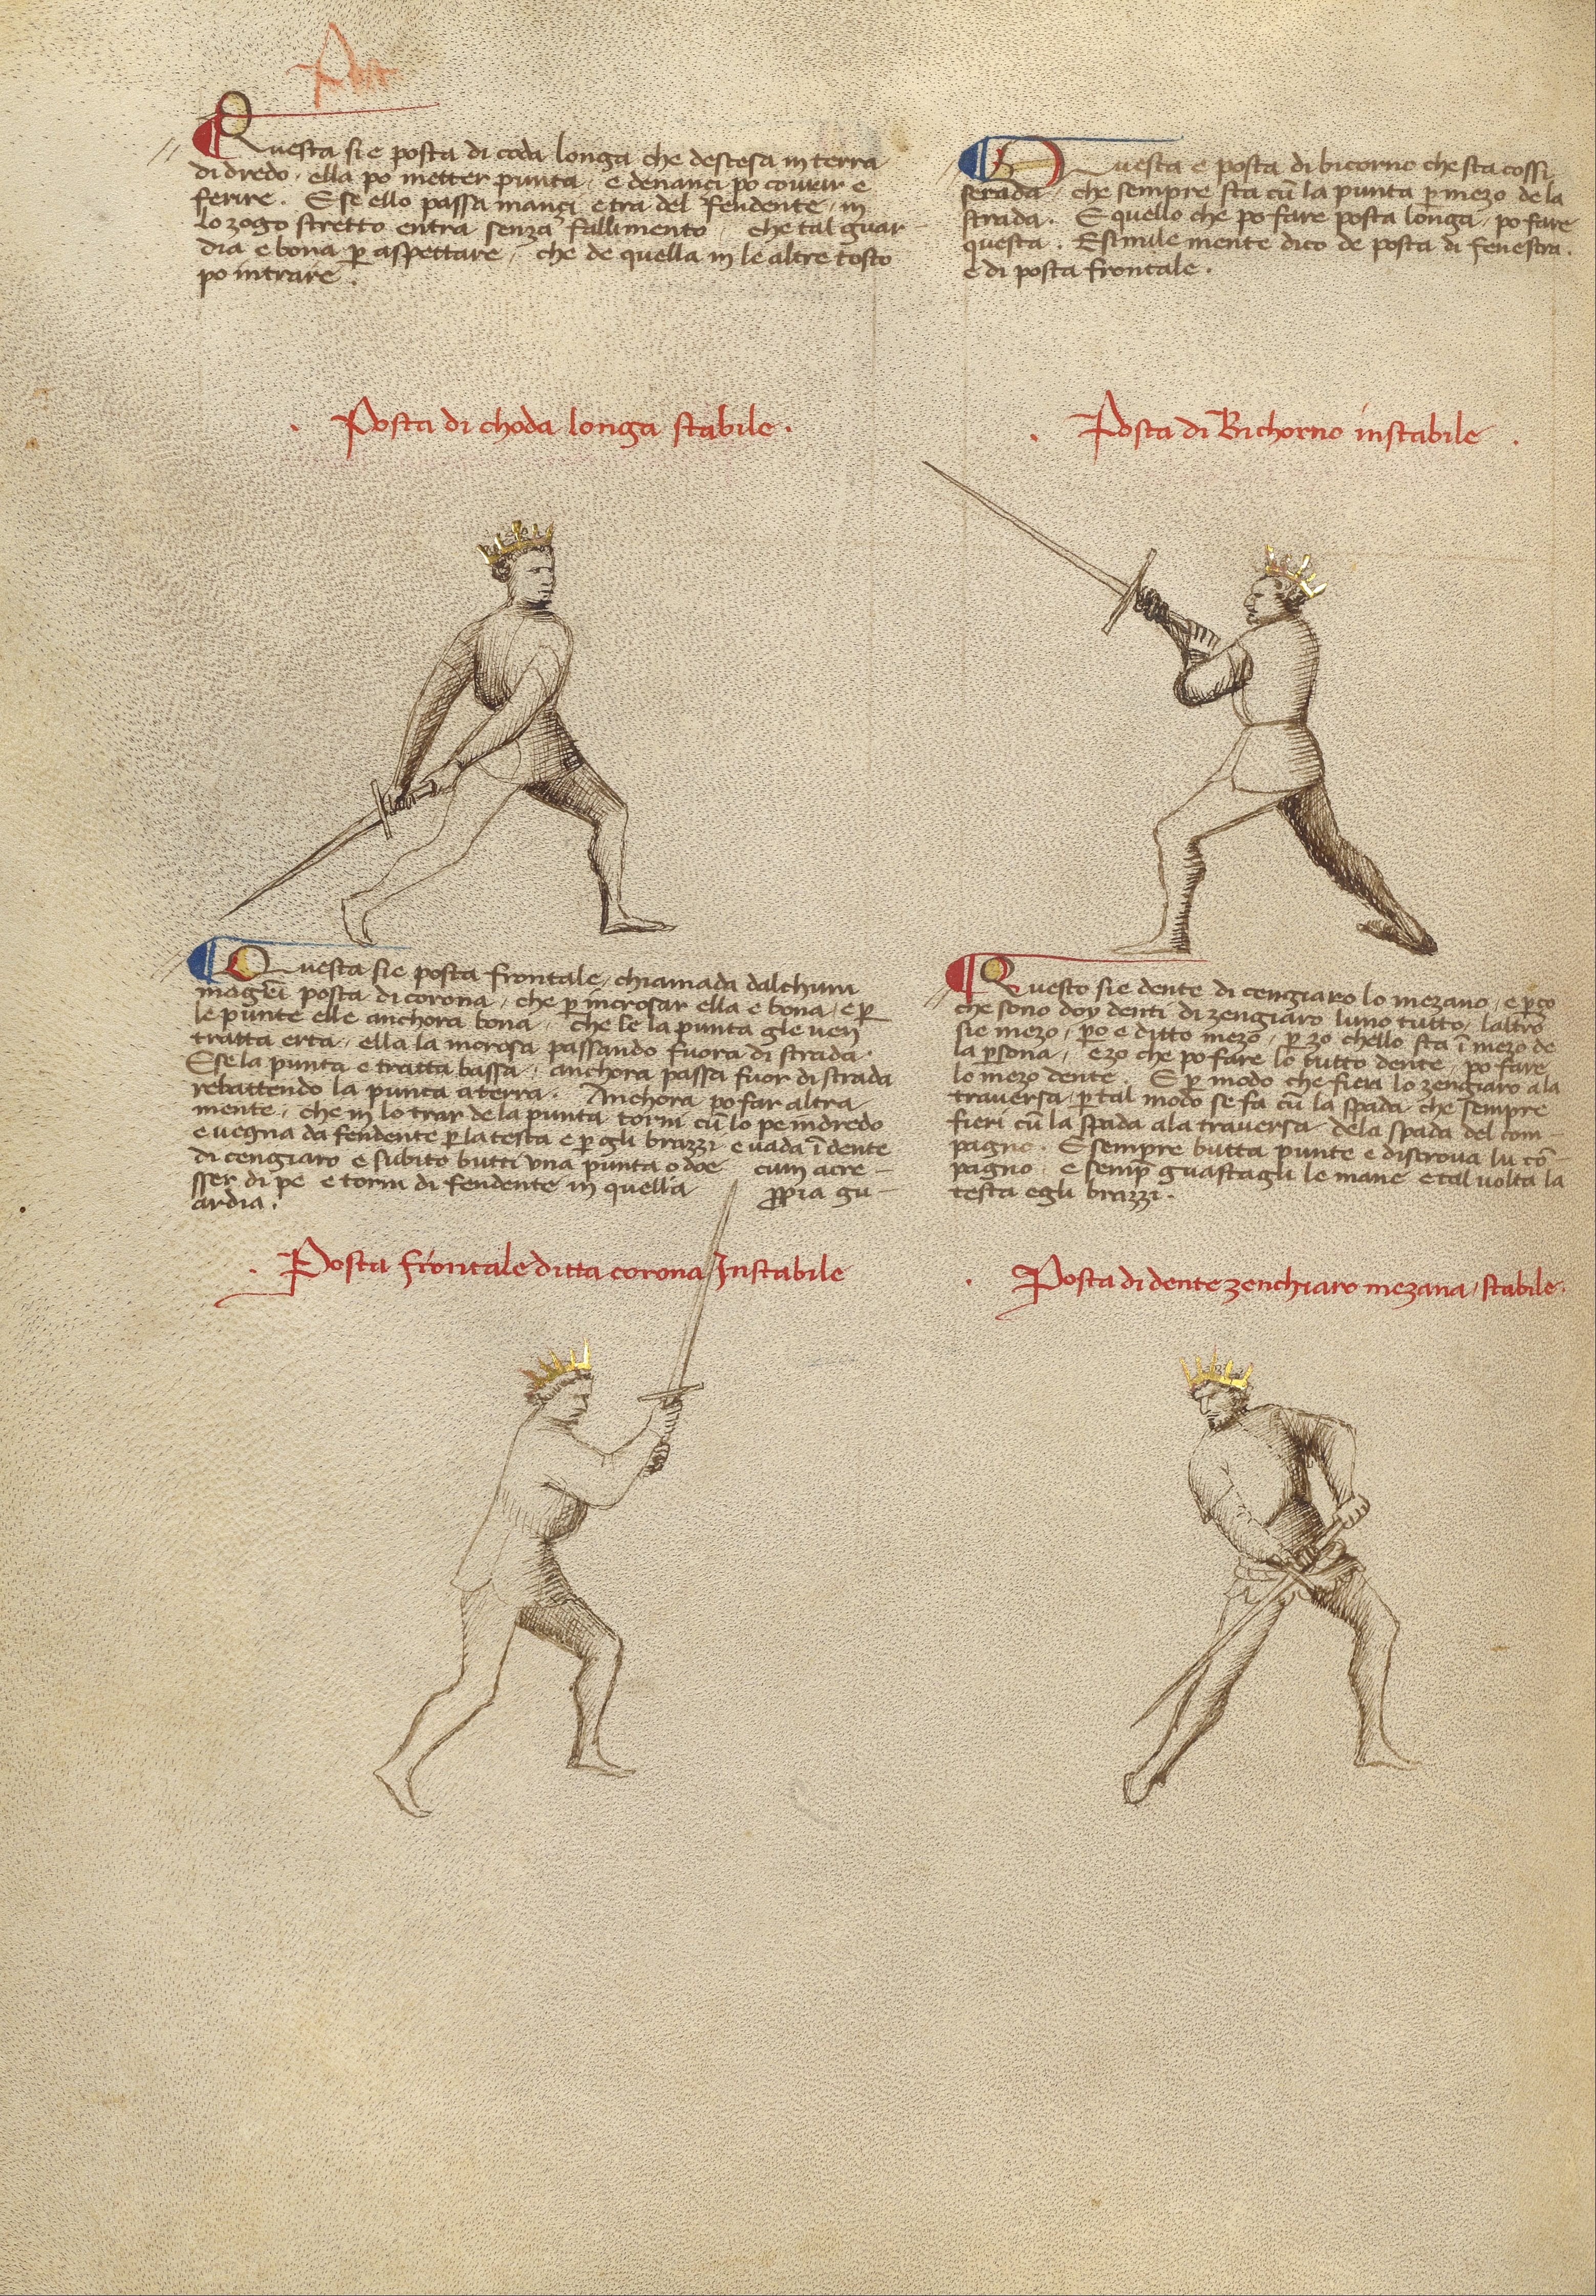 Questa sie posta di coda longa che destesa in terra
di dredo, ella po metter punta, e denanci po covrir e
ferire. E se ello passa inanci e tra del fendente, in
lo zogo stretto entra senza fallimento, che tal guar-
dia e bona p aspettare, che de quella in le altre tosto
po intrare.
Posta di choda longa stabile.
Questa e posta di bicorno che sta cossi
serada che sempre sta cū la punta p mezo de la
strada. E quello che po fare posta longa, po fare
questa. E simile mente dico de posta di fenestra.
e di posta frontale.
Posta di Bichorno instabile.
Questa sie posta frontale, chiamada dalchun
magrī posta di corona, che p incrosar ella e bona, e p
le punte elle anchora bona, che se la punta gle ven
tratta erta, ella la incrosa passando fuora di strada.
E se la punta e tratta bassa, anchora passa fuor di strada
rebattendo la punta a terra. Anchora po far altra
mente, che in lo trar de la punta torni cū lo pe indredo
e vegna da fendente p la testa e p gli brazzi e vada ī dente
di cengiaro e subito butti una punta o doe cum acre-
sser di pe e torni di fendente in quella ppia gu-
ardia.
Posta frontale ditta corona Instabile
Questo sie dente di cengiaro lo mezano, e pço
che sono doy denti di zengiaro luno tutto, laltro
sie mezo, po e ditto mezo, p zo chello sta ī mezo de
la psona, e zo che po fare lo tutto dente, po fare
lo mezo dente. E p modo che fieri lo zengiaro a la
traversa, p tal modo se fa cū la spada che sempre
fieri cū la spada a la traversa dela spada del com-
pagno. E sempre butta punte e discrova lu cō-
pagno, e semp guastagli le mane e tal volta la
testa e gli brazzi.
Posta di dente zenchiaro mezana, stabile.